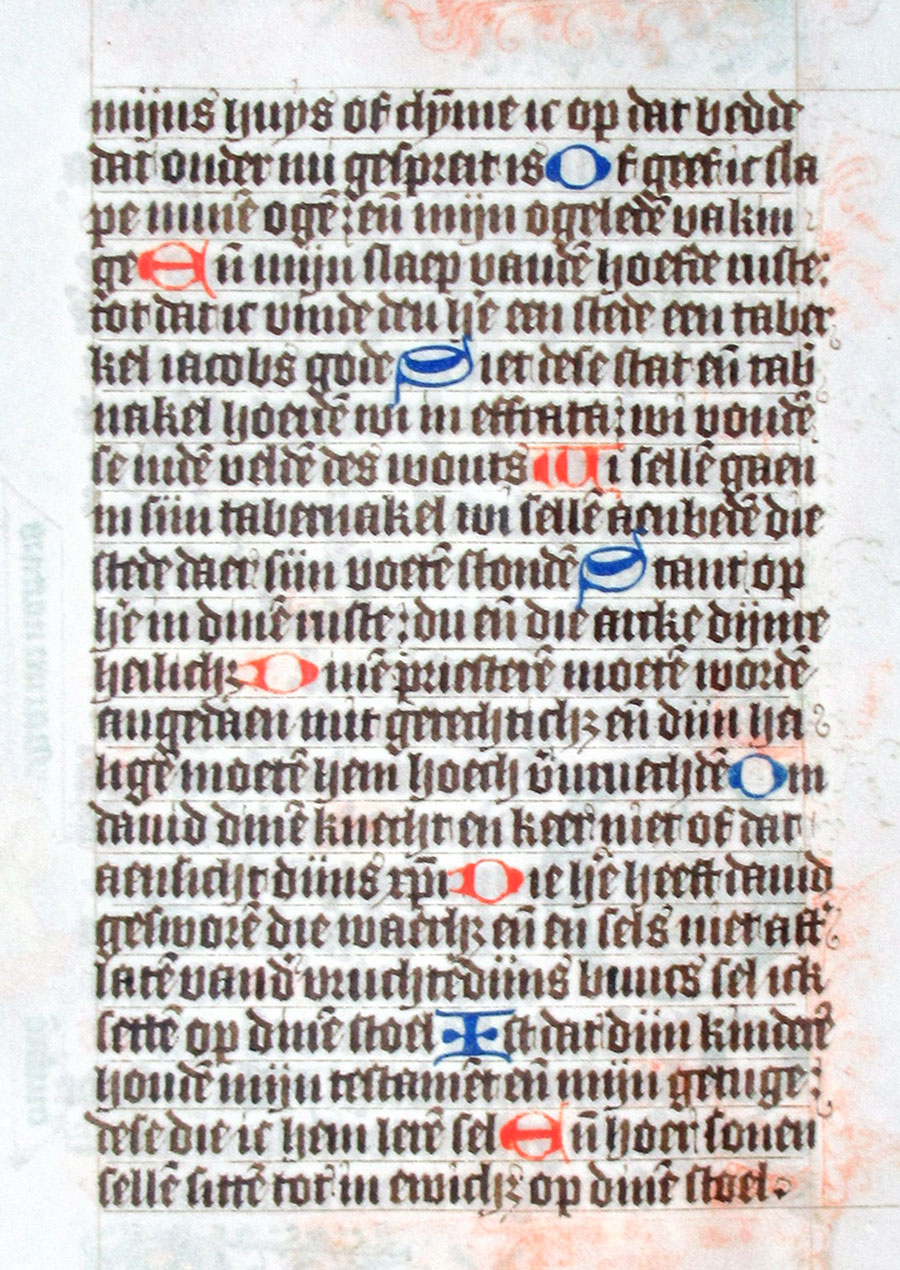 mijns huys of clȳme ic op dat bedde
dat onder mi gespreit is Of geef ic sla
pe minē ogē: eñ mijn ogeledē vakin
ge Eñ mijn slaep vandē hoefde ruste:
tot dat ic vinde den hē een stede een taber
kel iacobs gode Siet dese stat eñ tab
nakel hoerdē wi in effrata: wi vondē
se indē veldē des wouts Wi sellē gaen
in sijn tabernakel wi sellē aenbedē die
stede daer sijn voetē stondē Stant op
hē in dinē ruste: du eñ die arke dijnre
heilichz Dinē priesterē moetē wordē
angedaen mit gerechtichz eñ dijn hei
ligē moetē hem hoech v̄vruechdē Om
dauid dinē knecht en keer niet of dat
aensicht dijns xp̄i Die hē heeft dauid
gesworē die waerhz eñ en sels niet aff
latē vand' vruchtē dijns buucs sel ick
settē op dinē stoel Ist dat dijn kinderē
houdē mijn testamēt eñ mijn getuge:
dese die ic hem lerē sel Eñ hoer sonen
sellē sittē tot in ewichz op dinē stoel.